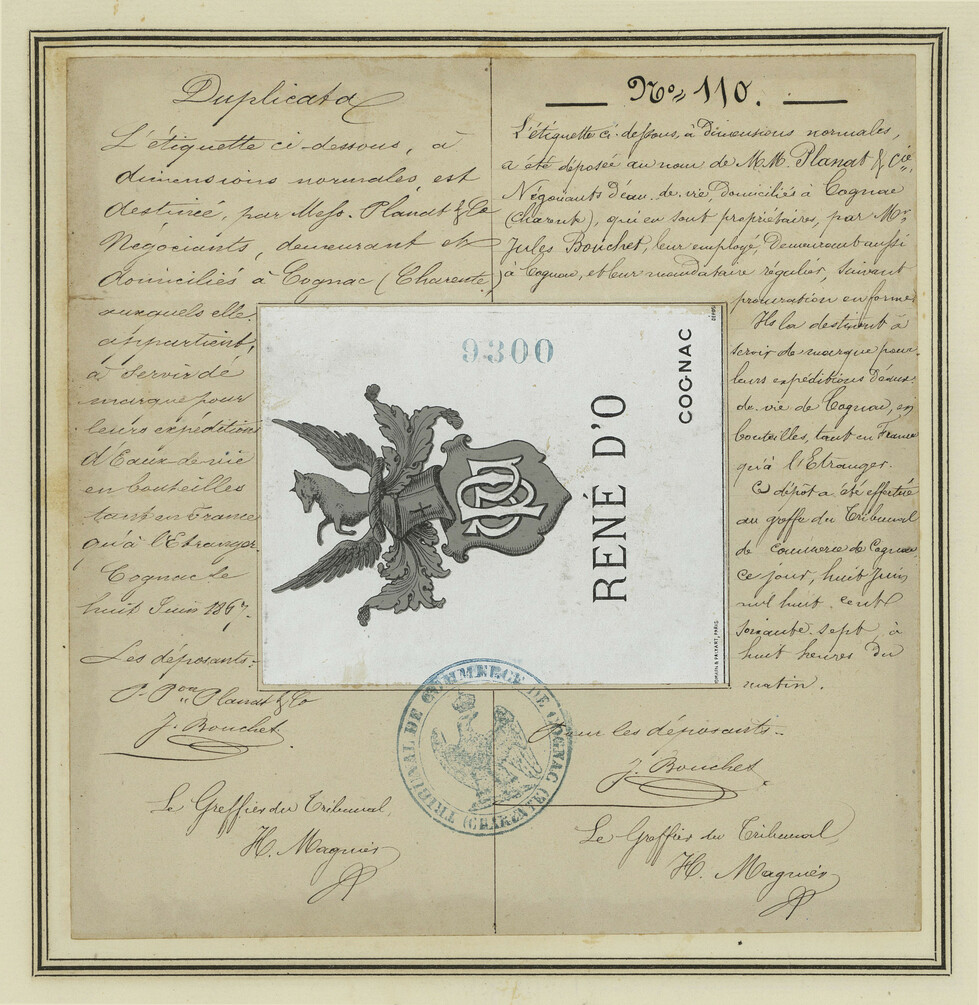 Duplicata
L'étiquette ci-dessous, à
dimensions normales, est
destinée, par Mess. Planat & Co
Négociants, demeurant et
domiciliés à Cognac (Charente,
auxquels elle
appartient,
à servir de
marque pour
leurs expéditions
d'Eaux-de-vie
en bouteilles
tant en France
qu'à l'Etranger.
Cognac le
huit Juin 1867.
Les déposants.
P. Pon Planat & Co
J. Bouchet
Le Greffier du Tribunal,
H. Magniés
No 110.
L'étiquette ci-dessous, à dimensions normales,
a été déposée au nom de M.M. Planat & Cie,
Négociants d'eau-de-vie, domiciliés à Cognac
(Charente), qui en sont propriétaires, par Mr.
Jules Bouchet, leur employé, demeurant aussi
à Cognac, et leur mandataire régulier, suivant
procuration en forme.
Ils la destinent à
servir de marque pour
leurs expéditions d'eaux-
de-vie de Cognac, en
bouteilles, tant en France
qu'à l'Etranger.
Ce dépôt a été effectué
au greffe du Tribunal
de commerce de Cognac
ce jour, huit juin
mil huit cent
soixante-sept, à
huit heures du
matin.
Pour les déposants.
J. Bouchet
Le Greffier du Tribunal,
H. Magniés
9300
RENÉ D'O
COGNAC
DÉPOSÉ
PARIS
TRIBUNAL DE COMMERCE DE COGNAC
(CHARENTE)